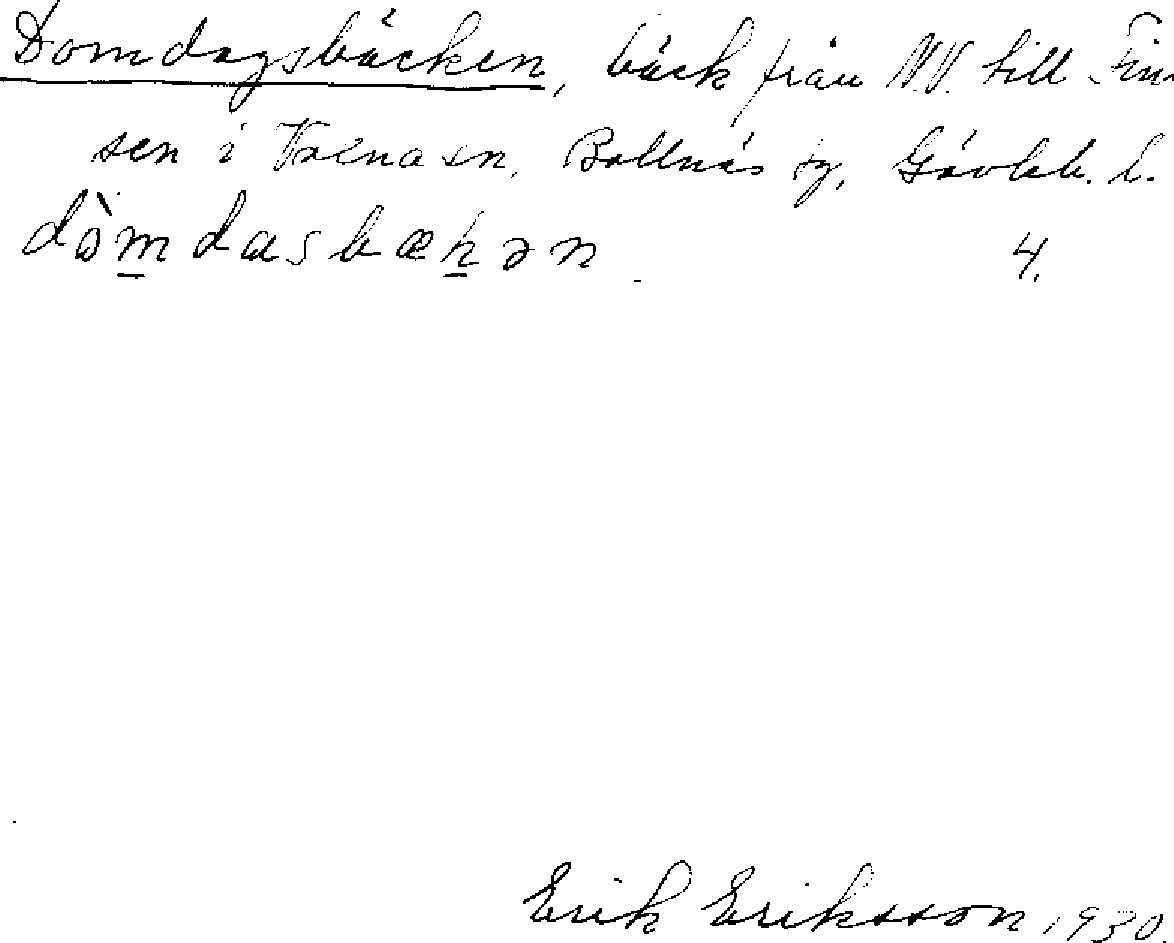 Domdagsbäcken, bäck från N.V. till Fin-
sen i Voxna sn, Bollnäs tg, Gävleb. l.
dòmdasbækən 4.
Erik Eriksson, 1930.